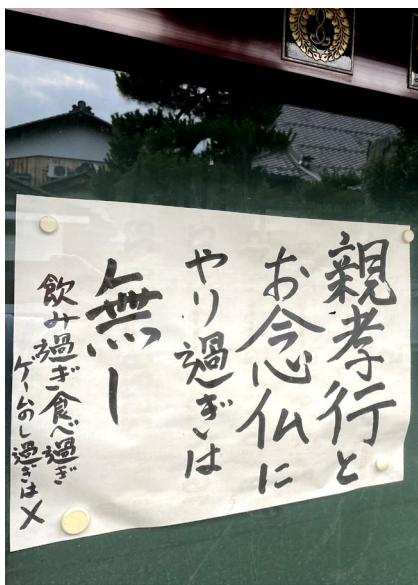 親孝行と
お念仏に
やり過ぎは
無し
飲み過ぎ食べ過ぎ
ゲームのし過ぎは×